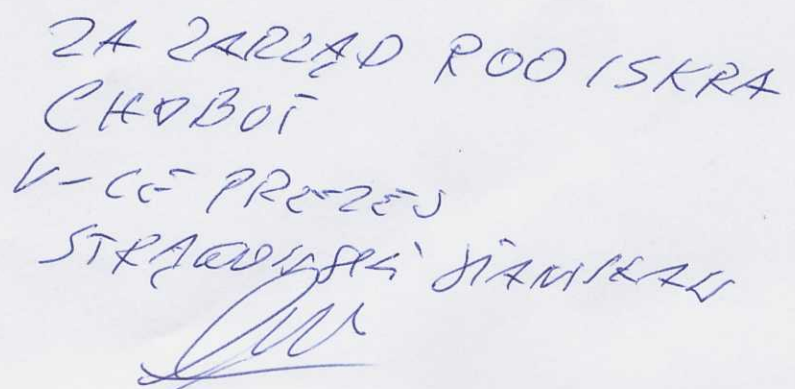 ZA ZARZĄD ROD ISKRA
CHOBOT
V-CE PREZES
STANISŁAW